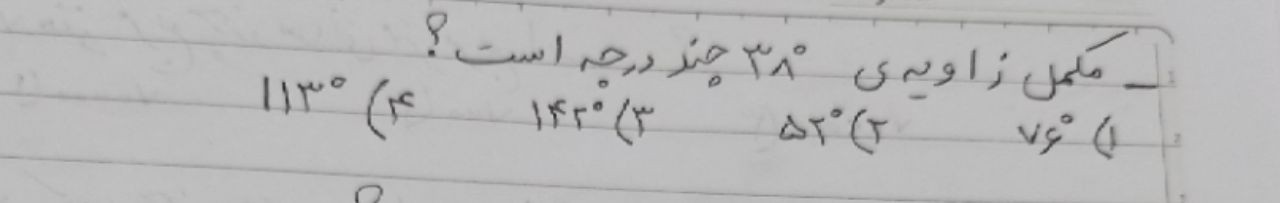 - مکمل زاویه ی ۳۸° چند درجه است؟
۱) ۷۶° ۲) ۵۲° ۳) ۱۴۲° ۴) ۱۱۳°